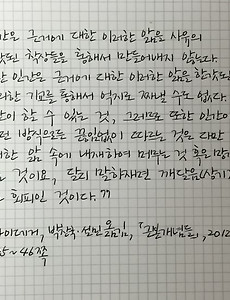 은 근거에 대한 이러한 앎을 사유의
된 확장들을 통해서 만들어내지 않는다.
한 인간은 근거에 대한 이러한 앎을
한 기교를 통해서 억지로 짜낼 수도 없다.
간이 할 수 있는 것, 그리고 또한 인간이
런 방식으로든 끊임없이 따르는 것은 다만
한 앎 속에 내재하여 머무는 것 혹은 망
것이요, 달리 말하자면 깨달음(상기
회피인 것이다."
이데거, 박찬국·설민 옮김, 「근본개념들」, 2012
5~46쪽